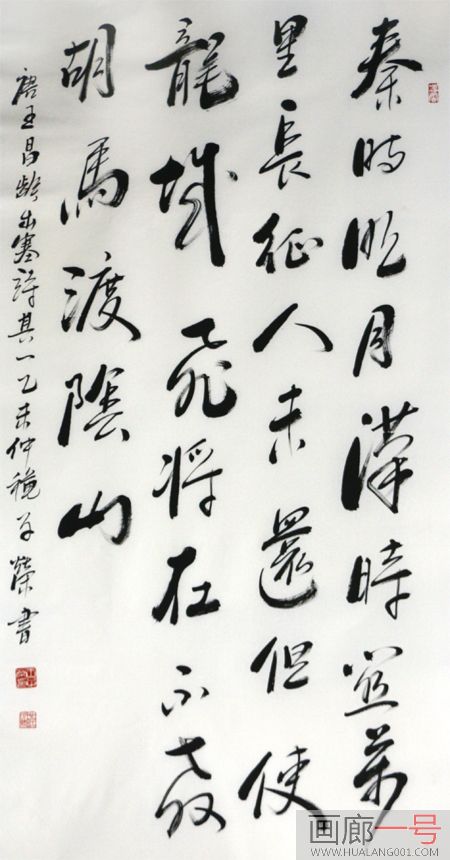 秦時明月漢時關萬
里長征人未還但使
龍城飛將在不教
胡馬渡陰山
唐王昌齡出塞詩其一乙未仲穐子榮書
画廊一号
WWW.HUALANG001.COM